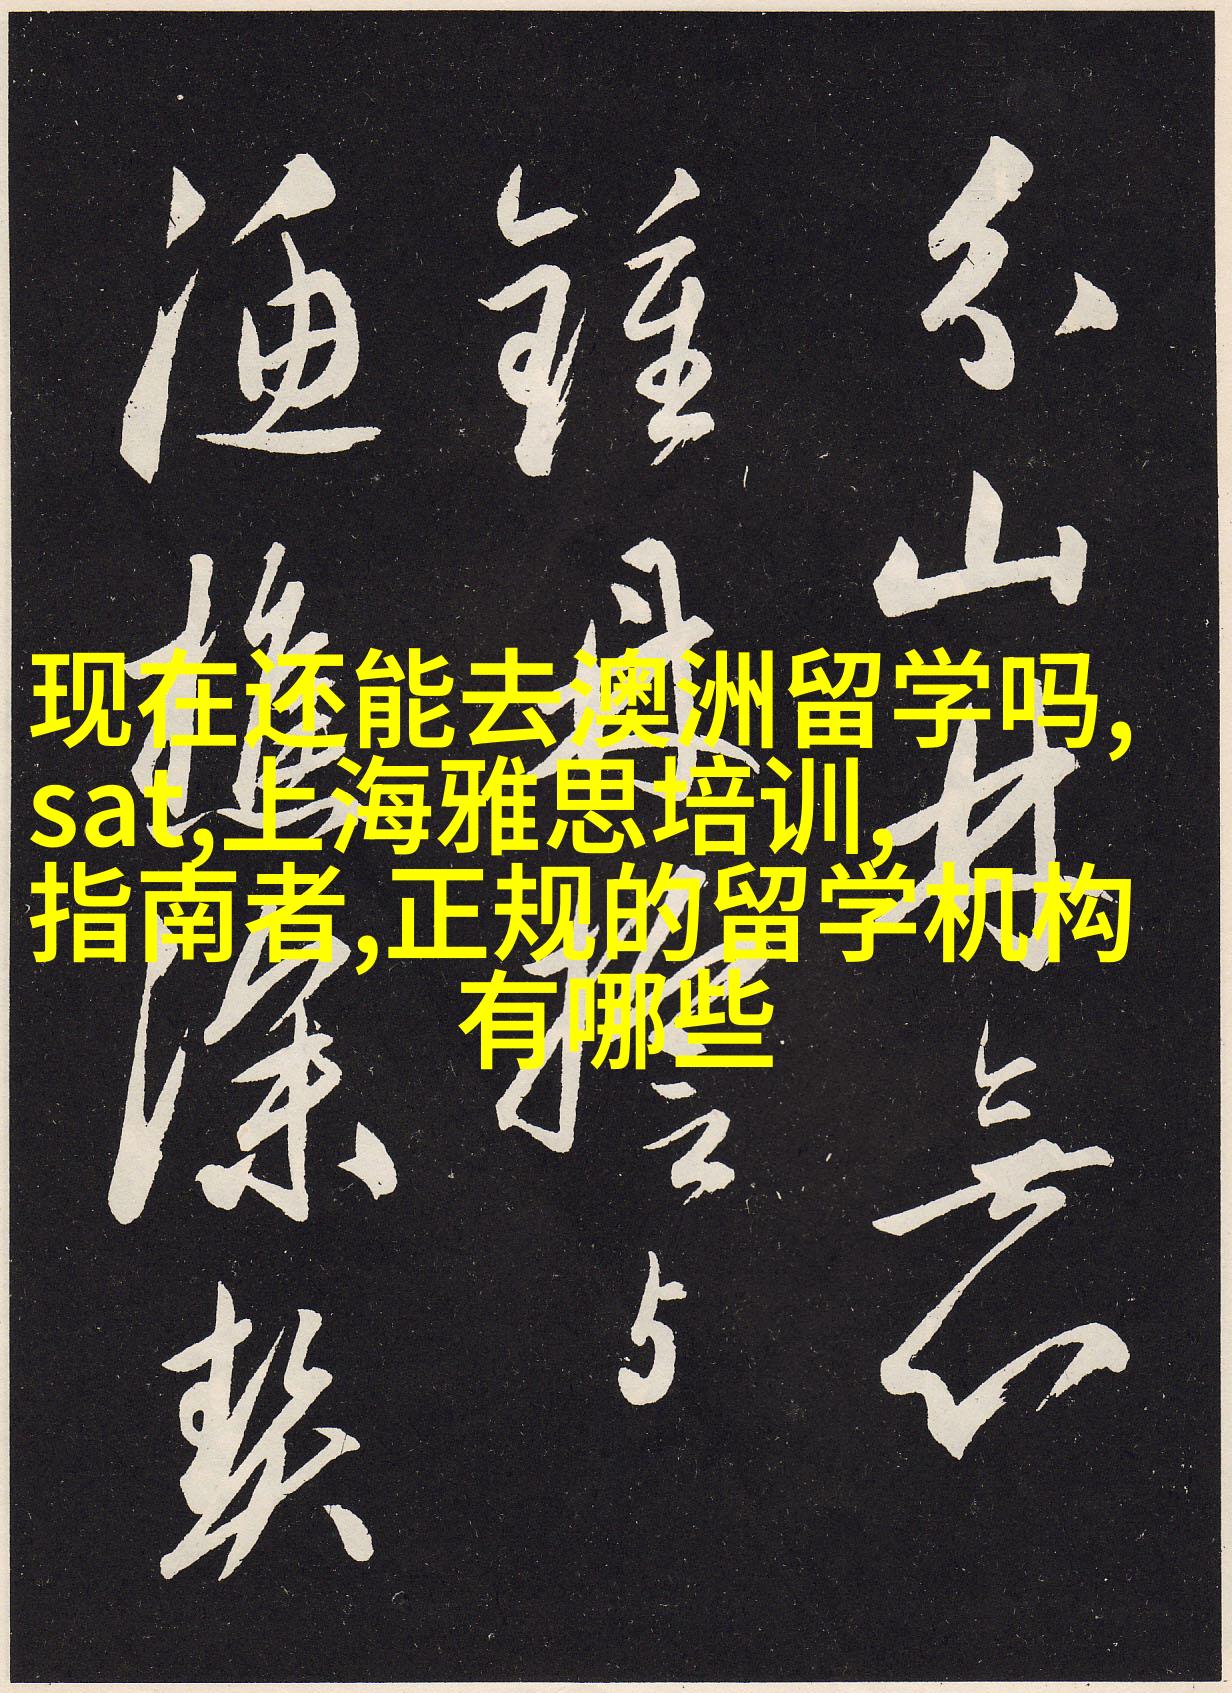 现在还能去澳洲留学吗,
sat,上海雅思培训,
指南者,正规的留学机构
有哪些
山林
鍾 与
漁樵深契